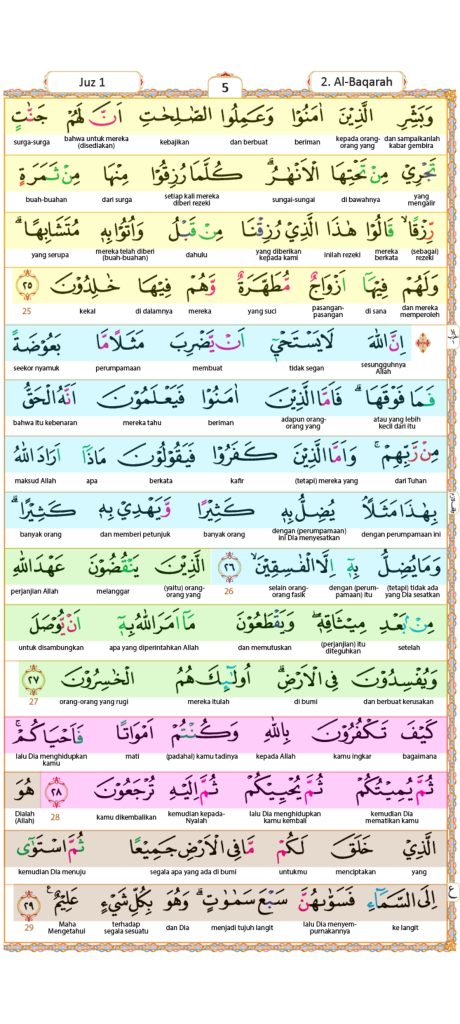 Juz 1
5
2. Al-Baqarah
وَبَشِّرِ الَّذِيْنَ اٰمَنُوْا وَعَمِلُوا الصّٰلِحٰتِ اَنَّ لَهُمْ جَنّٰتٍ
dan sampaikanlah kabar gembira kepada orang-orang yang beriman dan berbuat kebajikan bahwa untuk mereka (disediakan) surga-surga
تَجْرِيْ مِنْ تَحْتِهَا الْاَنْهٰرُ ۗ كُلَّمَا رُزِقُوْا مِنْهَا مِنْ ثَمَرَةٍ
yang mengalir di bawahnya sungai-sungai setiap kali mereka diberi rezeki dari surga buah-buahan
رِّزْقًا ۙ قَالُوْا هٰذَا الَّذِيْ رُزِقْنَا مِنْ قَبْلُ وَاُتُوْا بِهٖ مُتَشَابِهًا ۗ
(sebagai) rezeki mereka berkata inilah rezeki yang diberikan kepada kami dahulu mereka telah diberi (buah-buahan) yang serupa
وَلَهُمْ فِيْهَآ اَزْوَاجٌ مُّطَهَّرَةٌ وَّهُمْ فِيْهَا خٰلِدُوْنَ ٢٥
dan mereka memperoleh di sana pasangan-pasangan yang suci mereka di dalamnya kekal 25
اِنَّ اللّٰهَ لَا يَسْتَحْيٖٓ اَنْ يَّضْرِبَ مَثَلًا مَّا بَعُوْضَةً
sesungguhnya Allah tidak segan membuat perumpamaan seekor nyamuk
فَمَا فَوْقَهَا ۗ فَاَمَّا الَّذِيْنَ اٰمَنُوْا فَيَعْلَمُوْنَ اَنَّهُ الْحَقُّ
atau yang lebih kecil dari itu adapun orang-orang yang beriman mereka tahu bahwa itu kebenaran
مِنْ رَّبِّهِمْ ۚ وَاَمَّا الَّذِيْنَ كَفَرُوْا فَيَقُوْلُوْنَ مَاذَآ اَرَادَ اللّٰهُ
dari Tuhan (tetapi) mereka yang kafir berkata apa maksud Allah
بِهٰذَا مَثَلًا ۘ يُضِلُّ بِهٖ كَثِيْرًا وَّيَهْدِيْ بِهٖ كَثِيْرًا ۗ
dengan perumpamaan ini dengan (perumpamaan) ini Dia menyesatkan banyak orang dan memberi petunjuk banyak orang
وَمَا يُضِلُّ بِهٖٓ اِلَّا الْفٰسِقِيْنَ ۙ ٢٦ الَّذِيْنَ يَنْقُضُوْنَ عَهْدَ اللّٰهِ
(tetapi) tidak ada yang Dia sesatkan dengan (perumpamaan) itu selain orang-orang fasik 26 (yaitu) orang-orang yang melanggar perjanjian Allah
مِنْۢ بَعْدِ مِيْثَاقِهٖ ۖ وَيَقْطَعُوْنَ مَآ اَمَرَ اللّٰهُ بِهٖٓ اَنْ يُّوْصَلَ
setelah (perjanjian) itu diteguhkan dan memutuskan apa yang diperintahkan Allah untuk disambungkan
وَيُفْسِدُوْنَ فِى الْاَرْضِ ۗ اُولٰۤىِٕكَ هُمُ الْخٰسِرُوْنَ ٢٧
dan berbuat kerusakan di bumi mereka itulah orang-orang yang rugi 27
كَيْفَ تَكْفُرُوْنَ بِاللّٰهِ وَكُنْتُمْ اَمْوَاتًا فَاَحْيَاكُمْ ۚ
bagaimana kamu ingkar kepada Allah (padahal) kamu tadinya mati lalu Dia menghidupkan kamu
ثُمَّ يُمِيْتُكُمْ ثُمَّ يُحْيِيْكُمْ ثُمَّ اِلَيْهِ تُرْجَعُوْنَ ٢٨ هُوَ
kemudian Dia mematikan kamu lalu Dia menghidupkan kamu kembali kemudian kepada-Nyalah kamu dikembalikan 28 Dialah (Allah)
الَّذِيْ خَلَقَ لَكُمْ مَّا فِى الْاَرْضِ جَمِيْعًا ثُمَّ اسْتَوٰٓى
yang menciptakan untukmu segala apa yang ada di bumi kemudian Dia menuju
اِلَى السَّمَاۤءِ فَسَوّٰىهُنَّ سَبْعَ سَمٰوٰتٍ ۗ وَهُوَ بِكُلِّ شَيْءٍ عَلِيْمٌ ٢٩ ع
ke langit lalu Dia menyempurnakannya menjadi tujuh langit dan Dia terhadap segala sesuatu Maha Mengetahui 29